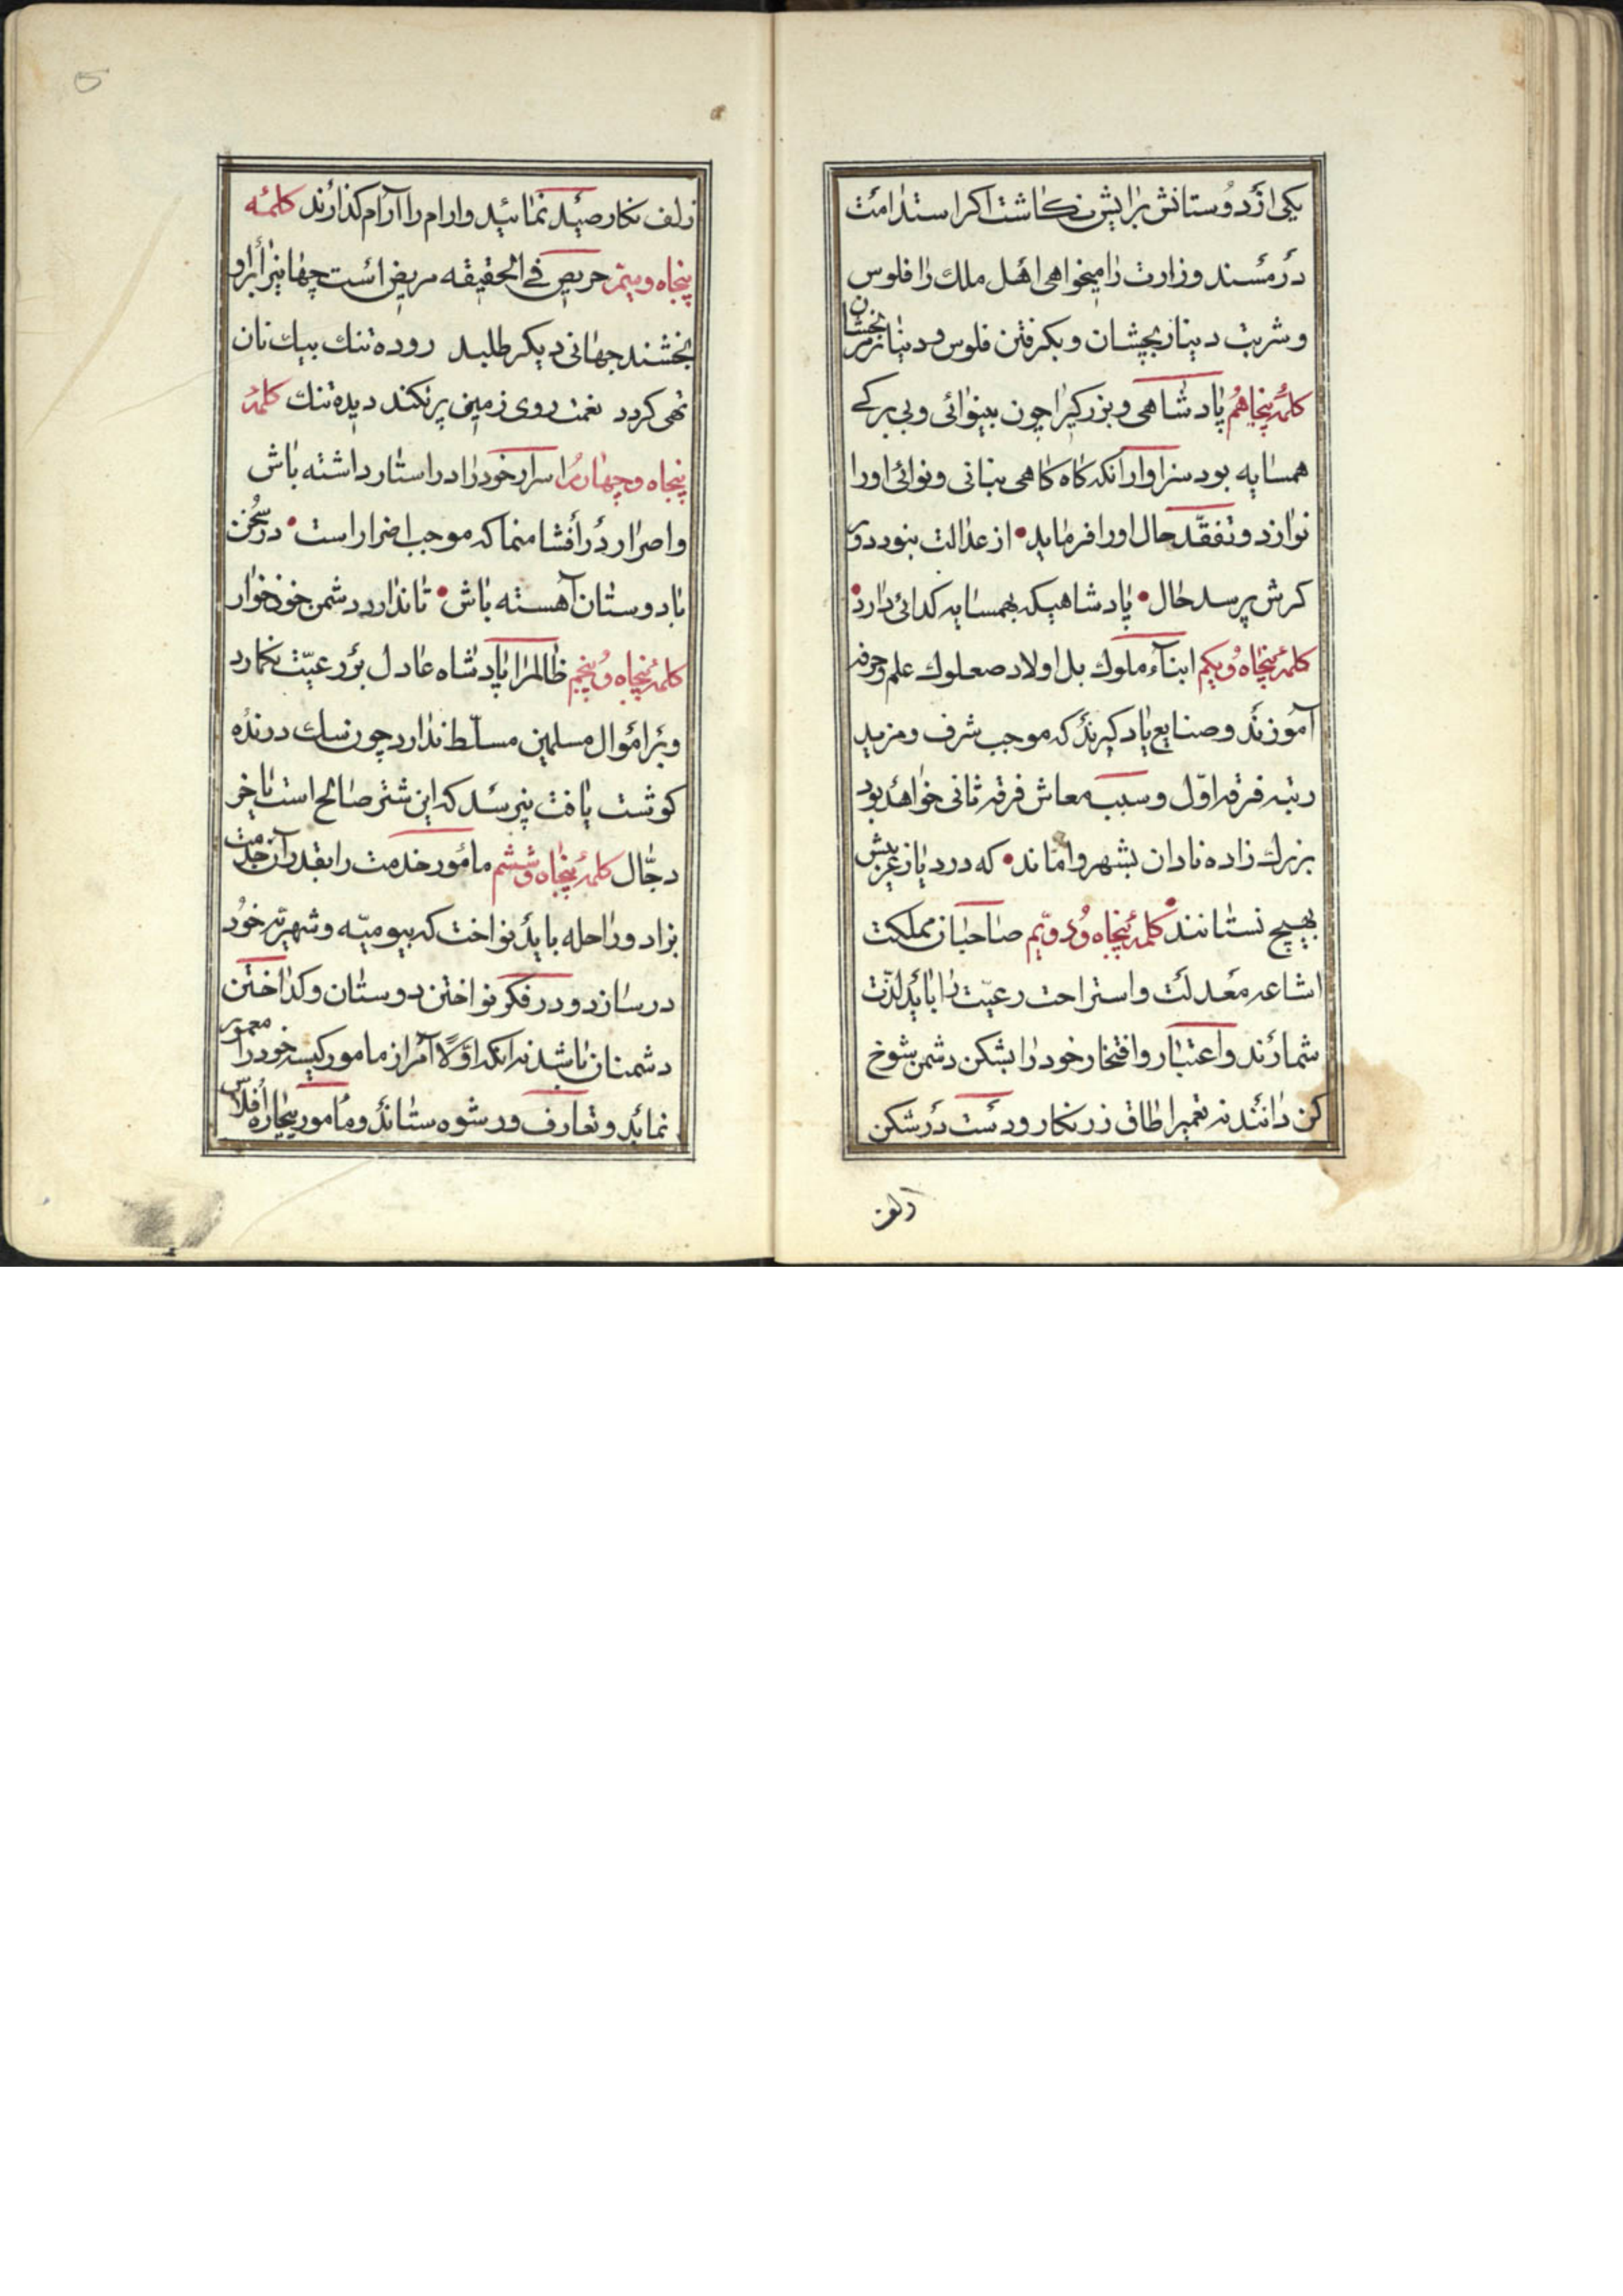 یکی از دوستانش برایش نکاشت اکر استدامت
در مسند وزارت را میخواهی اهل ملک را فلوس
و شربت دینار بچشان و بکرفتن فلوس و دینار مرنجشان
کلمهٔ پنجاهم پادشاهی و بزرکیرا چون بینوائی و بی برکے
همسایه بود سزاوار آنکه کاه کاهی بنانی و نوائی او را
نوازد و تفقّد حال او را فرماید • از عدالت نبود دور
کرش پرسد حال • پادشاهیکه بهمسایه کدائی دارد •
کلمهٔ پنجاه و یکم ابنآء ملوک بل اولاد صعلوک علم و حرفه
آموزند و صنایع یاد کیرند که موجب شرف و مزید
رتبه فرقه اوّل و سبب معاش فرقه ثانی خواهد بود
بزرک زاده نادان بشهر واماند • که در دیار غریبش
بهیچ نستانند • کلمهٔ پنجاه و دویّم صاحبان مملکت
اشاعه معدلت و استراحت رعیّت را باید لذّت
شمارند و اعتبار و افتخار خود را بشکن دشمن شوخ
کن دانند نه تعمیر اطاق زرنکار و دست در شکن
زلف
زلف نکار صید نمائید و ارام را آرام کذارند کلمهٔ
پنجاه و سیّم حریص فے الحقیقه مریض است جهانیرا برو
بخشند جهانی دیکر طلبد روده تنک بیک نان
تهی کردد نعمت روی زمین پر نکند دیده تنک کلمهٔ
پنجاه و چهارم اسرار خود را در استار داشته باش
و اصرار در افشا منما که موجب اضرار است • در سخن
با دوستان آهسته باش • تا ندارد دشمن خونخوار
کلمهٔ پنجاه و پنجم ظالمرا پادشاه عادل بر رعیّت نکمارد
و بر اموال مسلمین مسلّط ندارد چون سک درنده
کوشت یافت نپرسد که این شتر صالح است یا خر
دجّال کلمهٔ پنجاه و ششم مامور خدمت را بقدر آن خدمت
بزاد و راحله باید نواخت که بیومیّه و شهریّه خود
در سازد و در فکر نواختن دوستان و کداختن
دشمنان باشد نه آنکه اوّلا آمر از مامور کیسه خود را معمور
نماید و تعارف و رشوه ستاند و مامور بیچاره افلاس